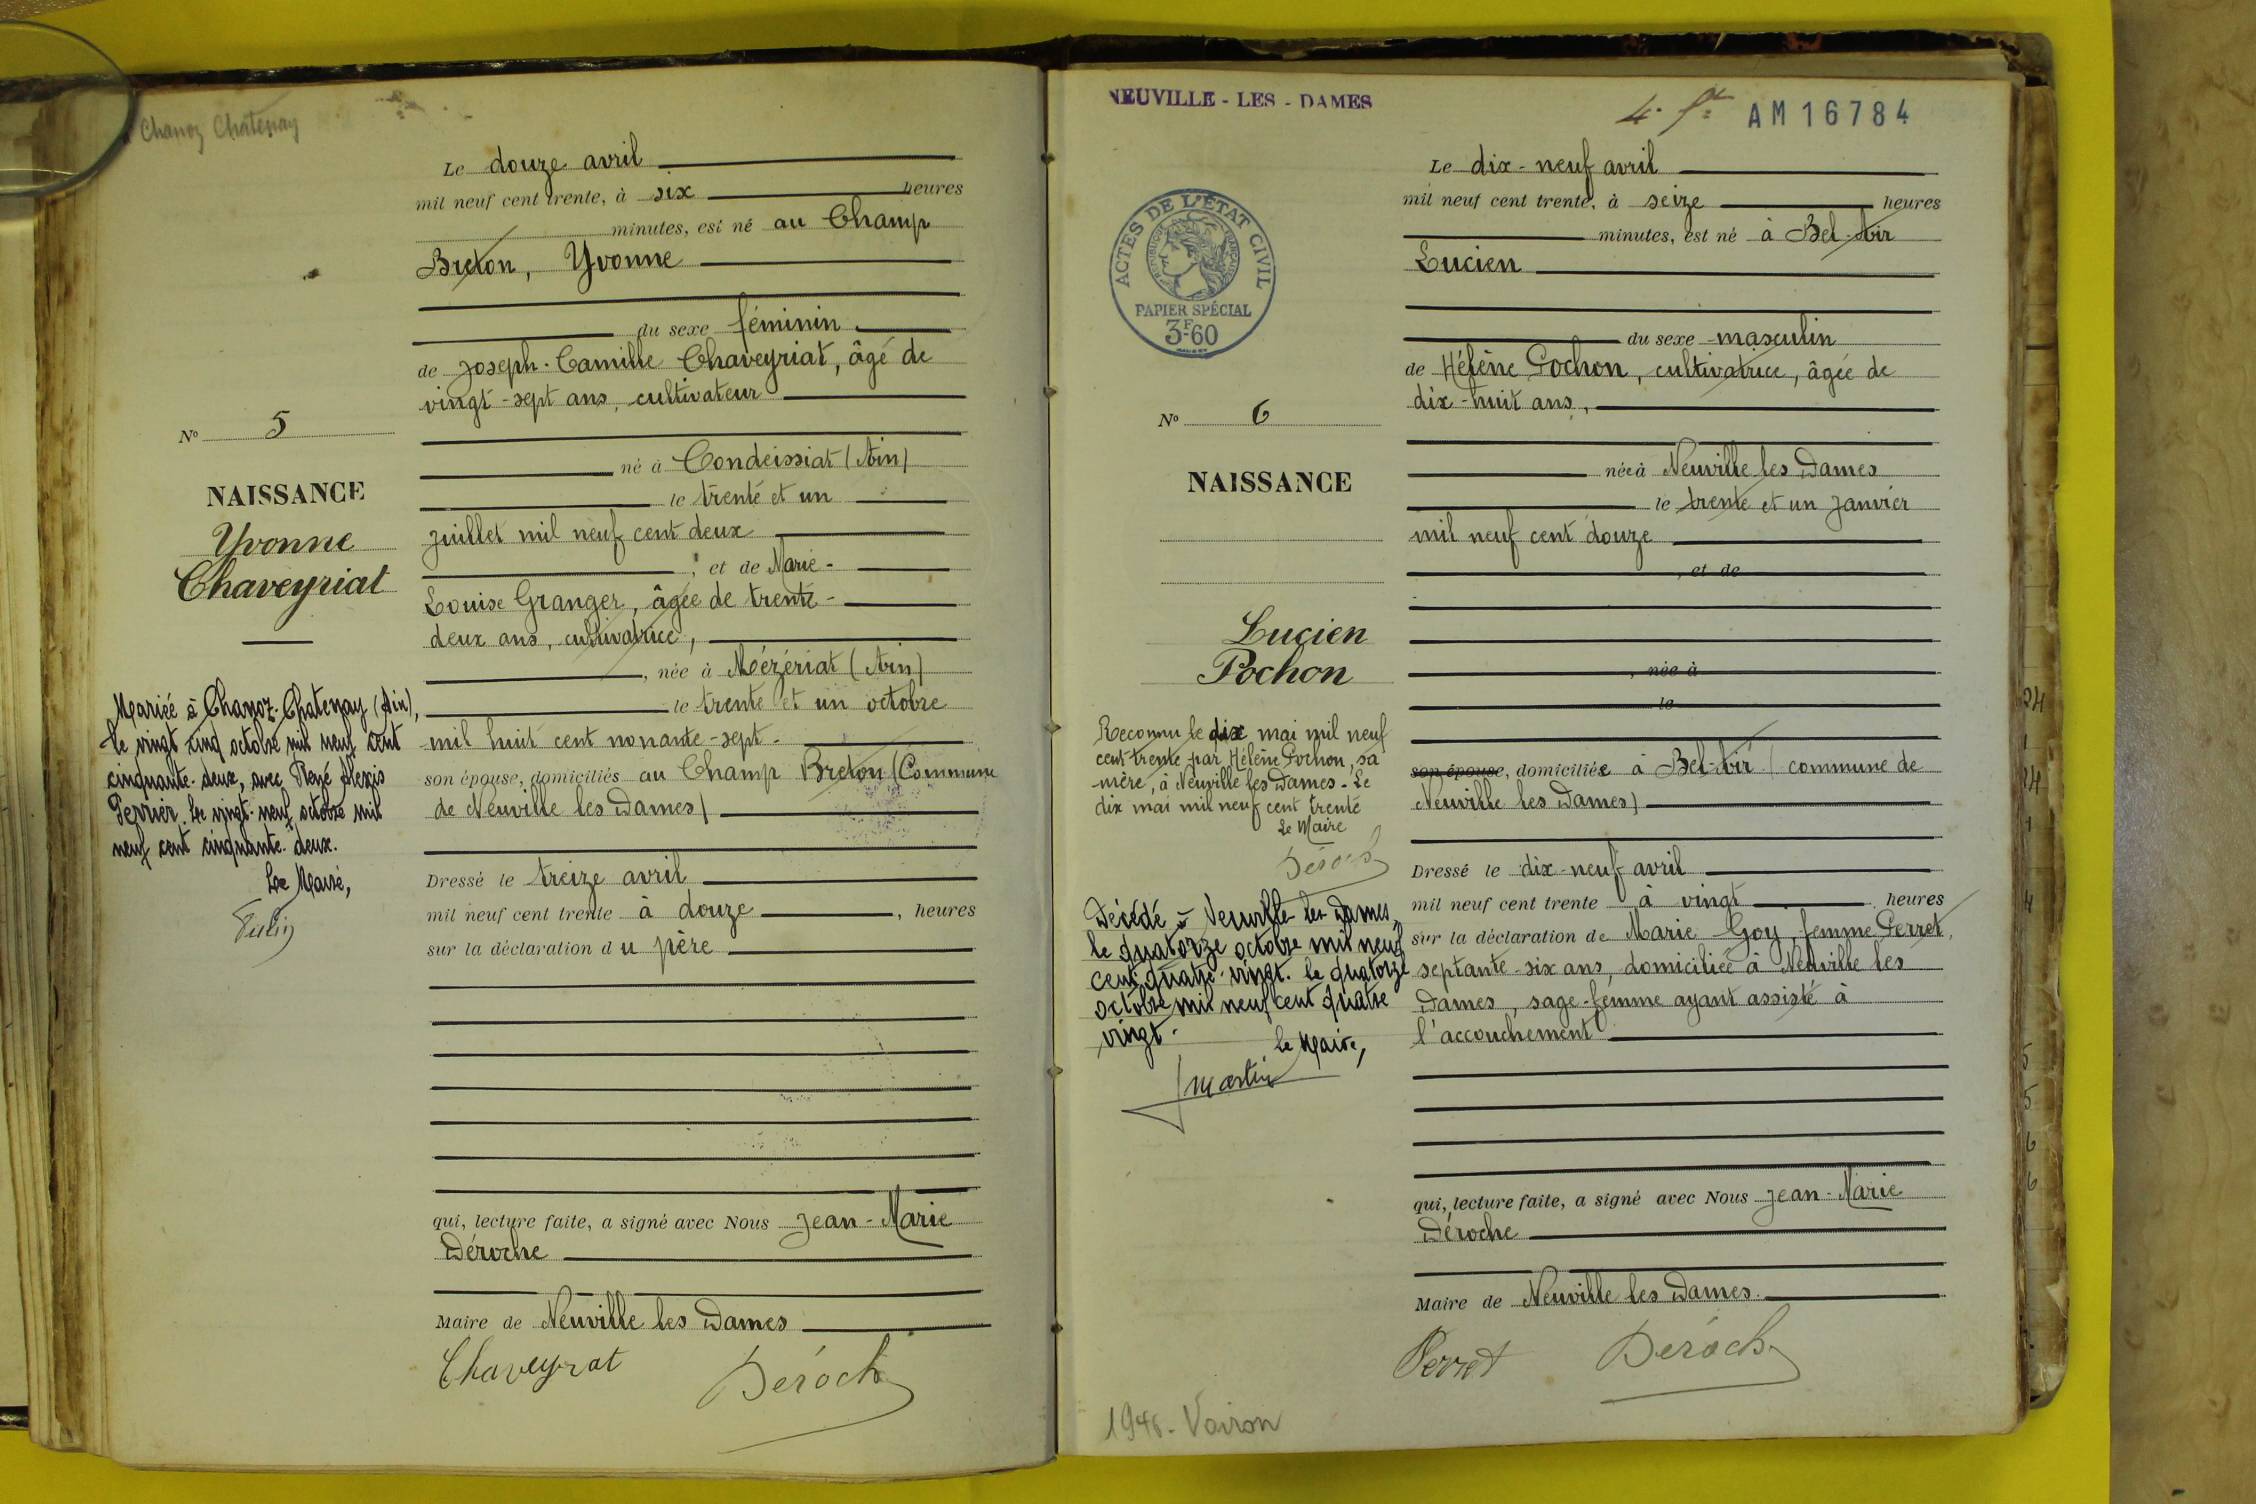 Chanoz Chatenay
Le douze avril
mil neuf cent trente, à six heures
minutes, est né au Champ
Breton, Yvonne
du sexe féminin
de Joseph-Camille Chaveyriat, âgé de
vingt-sept ans, cultivateur
né à Condeissiat (Ain)
le trente et un
juillet mil neuf cent deux
, et de Marie-
Louise Granger, âgée de trente-
deux ans, cultivatrice,
, née à Mézériat (Ain)
le trente et un octobre
mil huit cent nonante-sept.
son épouse, domiciliés au Champ Breton (Commune
de Neuville les Dames)
Dressé le treize avril
mil neuf cent trente à douze , heures
sur la déclaration du père
qui, lecture faite, a signé avec Nous Jean-Marie
Déroche
Maire de Neuville les Dames
Chaveyrat Déroch
No 5
NAISSANCE
Yvonne
Chaveyriat
Mariée à Chanoz-Chatenay (Ain),
le vingt cinq octobre mil neuf cent
cinquante-deux, avec René Alexis
Perrier. Le vingt-neuf octobre mil
neuf cent cinquante-deux.
Le Maire,
NEUVILLE - LES - DAMES
AM16784
ACTES DE L'ÉTAT CIVIL
RÉPUBLIQUE FRANÇAISE
PAPIER SPÉCIAL
3F-60
Le dix-neuf avril
mil neuf cent trente, à seize heures
minutes, est né à Bel-Air
Lucien
du sexe masculin
de Hélène Pochon, cultivatrice, âgée de
dix-huit ans,
née à Neuville les Dames
le trente et un janvier
mil neuf cent douze
, et de
, née à
le
son épouse, domiciliée à Bel-Air (commune de
Neuville les Dames)
Dressé le dix-neuf avril
mil neuf cent trente à vingt , heures
sur la déclaration de Marie Goy, femme Perret,
septante-six ans, domiciliée à Neuville les
Dames, sage-femme ayant assisté à
l'accouchement
qui, lecture faite, a signé avec Nous Jean-Marie
Déroche
Maire de Neuville les Dames.
Perret Déroch
No 6
NAISSANCE
Lucien
Pochon
Reconnu le dix mai mil neuf
cent trente par Hélène Pochon, sa
mère, à Neuville les Dames. Le
dix mai mil neuf cent trente
Le Maire
Déroch
Décédé à Neuville les Dames,
le quatorze octobre mil neuf
cent quatre-vingt. le quatorze
octobre mil neuf cent quatre
vingt.
le Maire,
Martin
Voiron
24
1
24
1
4
5
5
6
6